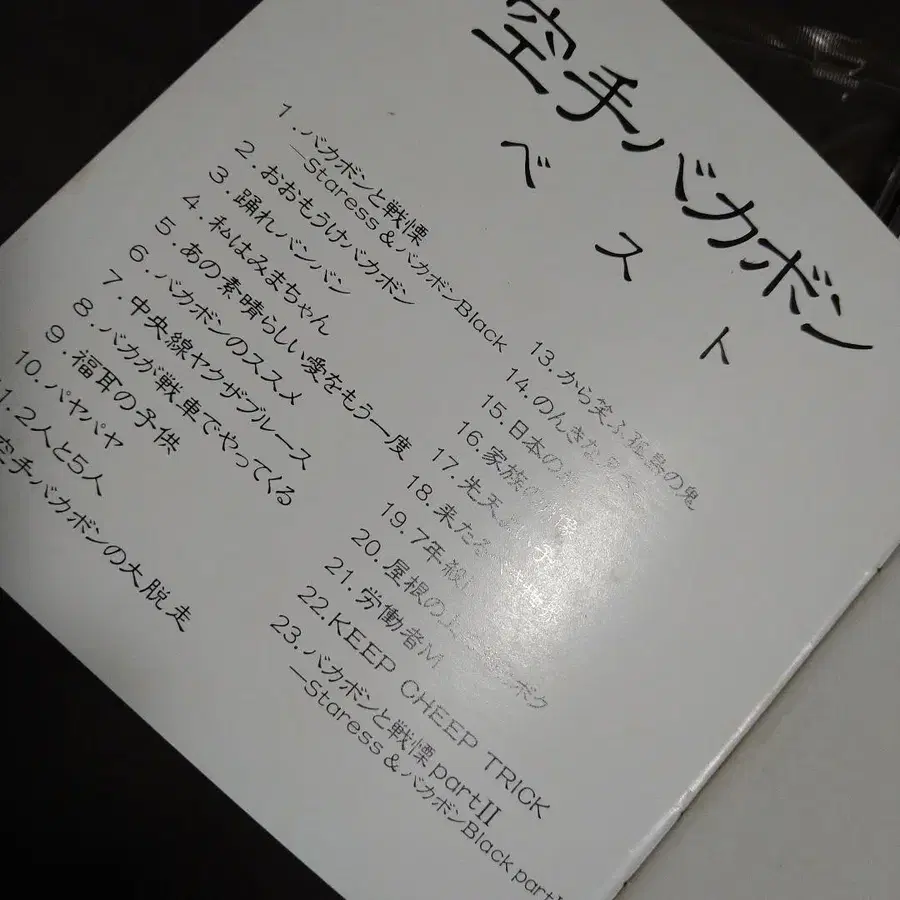 空手バカボン
ベスト
1.バカボンと戦慄
—Staress&バカボンBlack
2.おおもうけバカボン
3.踊れバンバン
4.私はみまちゃん
5.あの素晴らしい愛をもう一度
6.バカボンのススメ
7.中央線ヤクザブルース
8.バカが戦車でやってくる
9.福耳の子供
10.パヤパヤ
1.2人と5人
空手バカボンの大脱走
13.から笑ふ孤島の鬼
14.のんきな
15.日本の
16.家族の
17.先天
18.来たる
19.7年殺し
20.屋根の上
21.労働者M
22.KEEP CHEEP TRICK
23.バカボンと戦慄partII
—Staress&バカボンBlack part